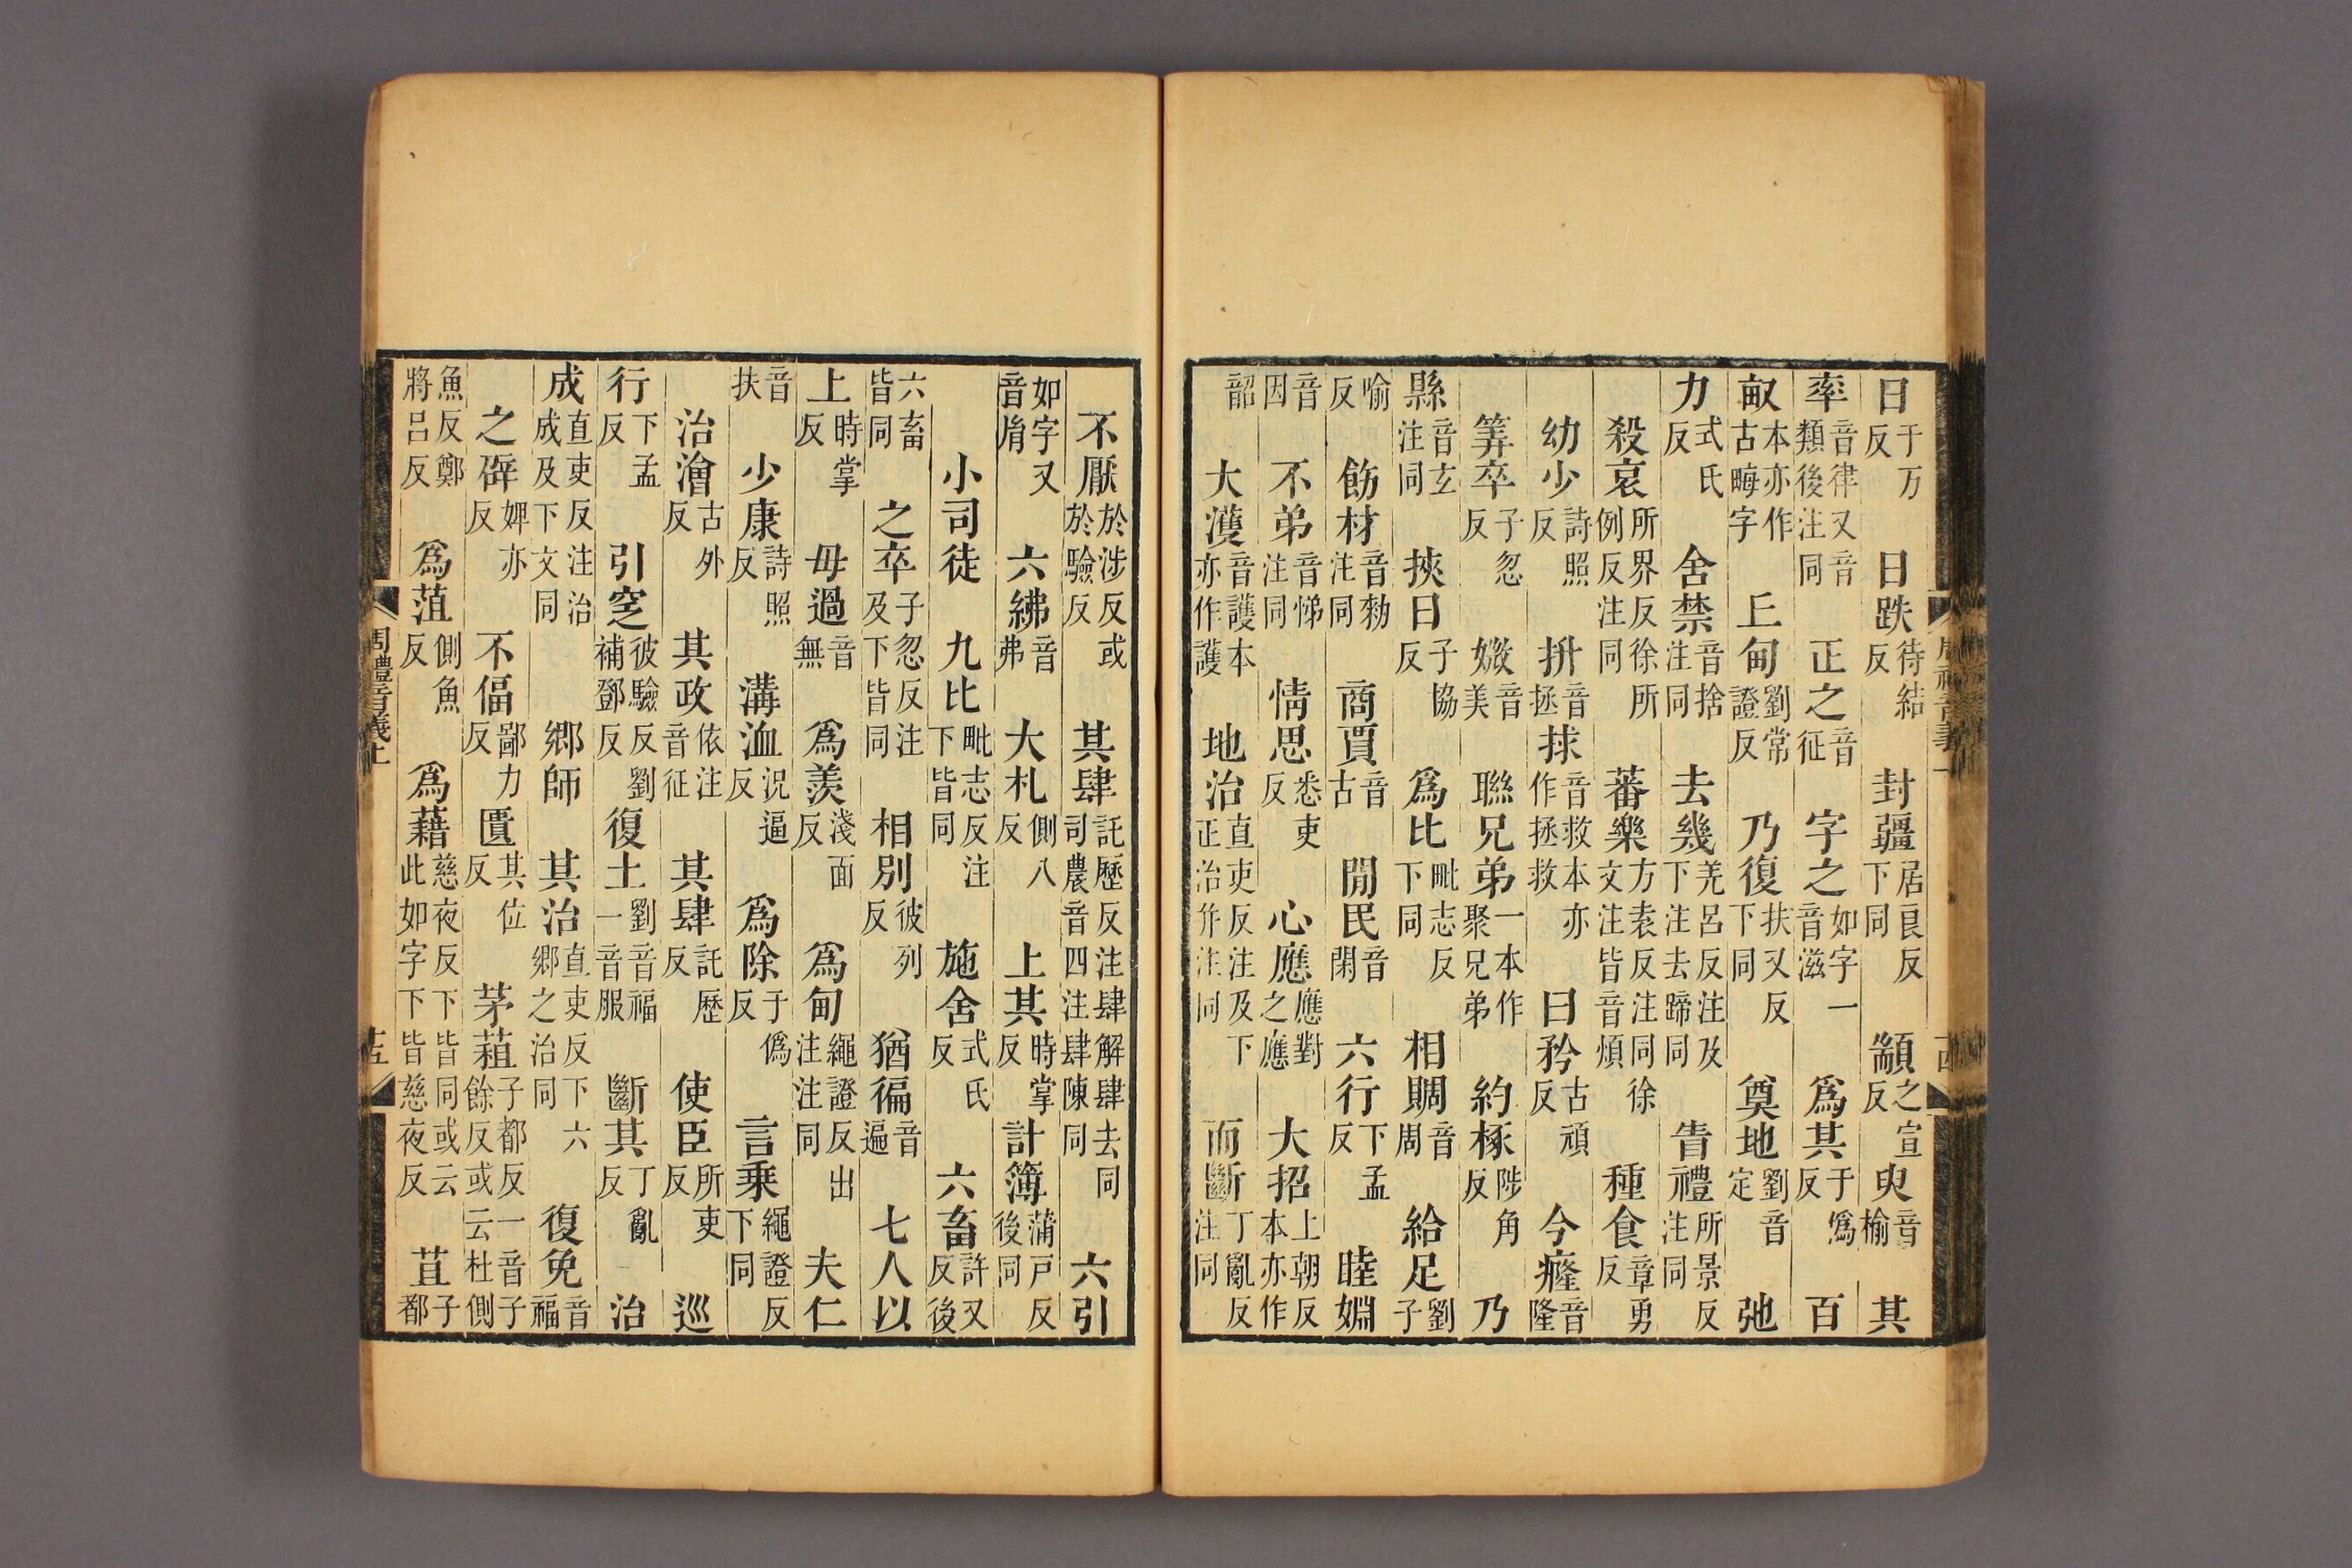 日于万反日跌待結反封疆居良反下同顓之宣反臾音榆其
率音律又音類後注同正之音征字之如字一音滋爲其于僞反百
畝本亦作古畮字丘甸劉常證反乃復扶又反下同奠地劉音定弛
力式氏反舍禁音捨注同去幾羌呂反注及下注去蹄同眚禮所景反注同
殺哀所界反徐所例反注同蕃樂方袁反注同徐文注皆音煩種食章勇反
幼少詩照反抍音拯捄音救本亦作拯救曰矜古頑反今癃音隆
筭卒子忽反媺音美聯兄弟一本作聚兄弟約椓陟角反乃
縣音玄注同挾日子協反爲比毗志反下同相賙音周給足劉子
喻反飭材音勑注同商賈音古閒民音閑六行下孟反睦婣
音因不弟音悌注同情思悉吏反心應應對之應大招上朝反本亦作
韶大濩音護本亦作護地治直吏反注及下正治并注同而斷丁亂反注同
不厭於涉反或於驗反其肆託歷反注肆解肆去同司農音四注肆陳同六引
如字又音胤六紼音弗大札側八反上其時掌反計簿蒲戶反後同
小司徒九比毗志反注下皆同施舍式氏反六畜許又反後
六畜皆同之卒子忽反注及下皆同相別彼列反猶徧音遍七人以
上時掌反毋過音無爲羨淺面反爲甸繩證反出注注同夫仁
音扶少康詩照反溝洫況逼反爲除于僞反言乘繩證反下同
治澮古外反其政依注音征其肆託歷反使臣所吏反巡
行下孟反引窆彼驗反劉補鄧反復土劉音福一音服斷其丁亂反治
成直吏反注治成及下文同鄉師其治直吏反下六鄉之治同復免音福
之辟婢亦反不偪鄙力反匱其位反茅蒩子都反一音子餘反或云杜側
魚反鄭將呂反爲菹側魚反爲藉慈夜反下皆同或云此如字下皆慈夜反苴子都
周禮音義上
十五